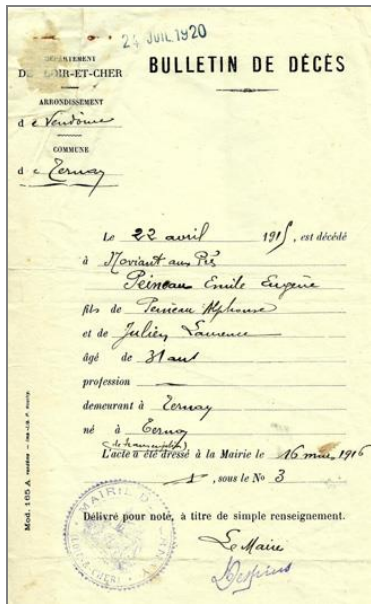 24 JUIL 1920
DÉPARTEMENT
DE LOIR-ET-CHER
BULLETIN DE DÉCÈS
ARRONDISSEMENT
de Vendôme
COMMUNE
de Ternay
Le 22 avril 1915, est décédé
à Noviant aux Prés
Peineau Emile Eugène
fils de Peineau Alphonse
et de Julien Laurence
âgé de 31 ans
profession —
demeurant à Ternay
né à Ternay
(de transcription)
L'acte a été dressé à la Mairie le 16 mars 1916
, sous le No 3
Délivré pour note, à titre de simple renseignement.
Le Maire
MAIRIE D
(LOIR & CHER)
Mod. 165 A